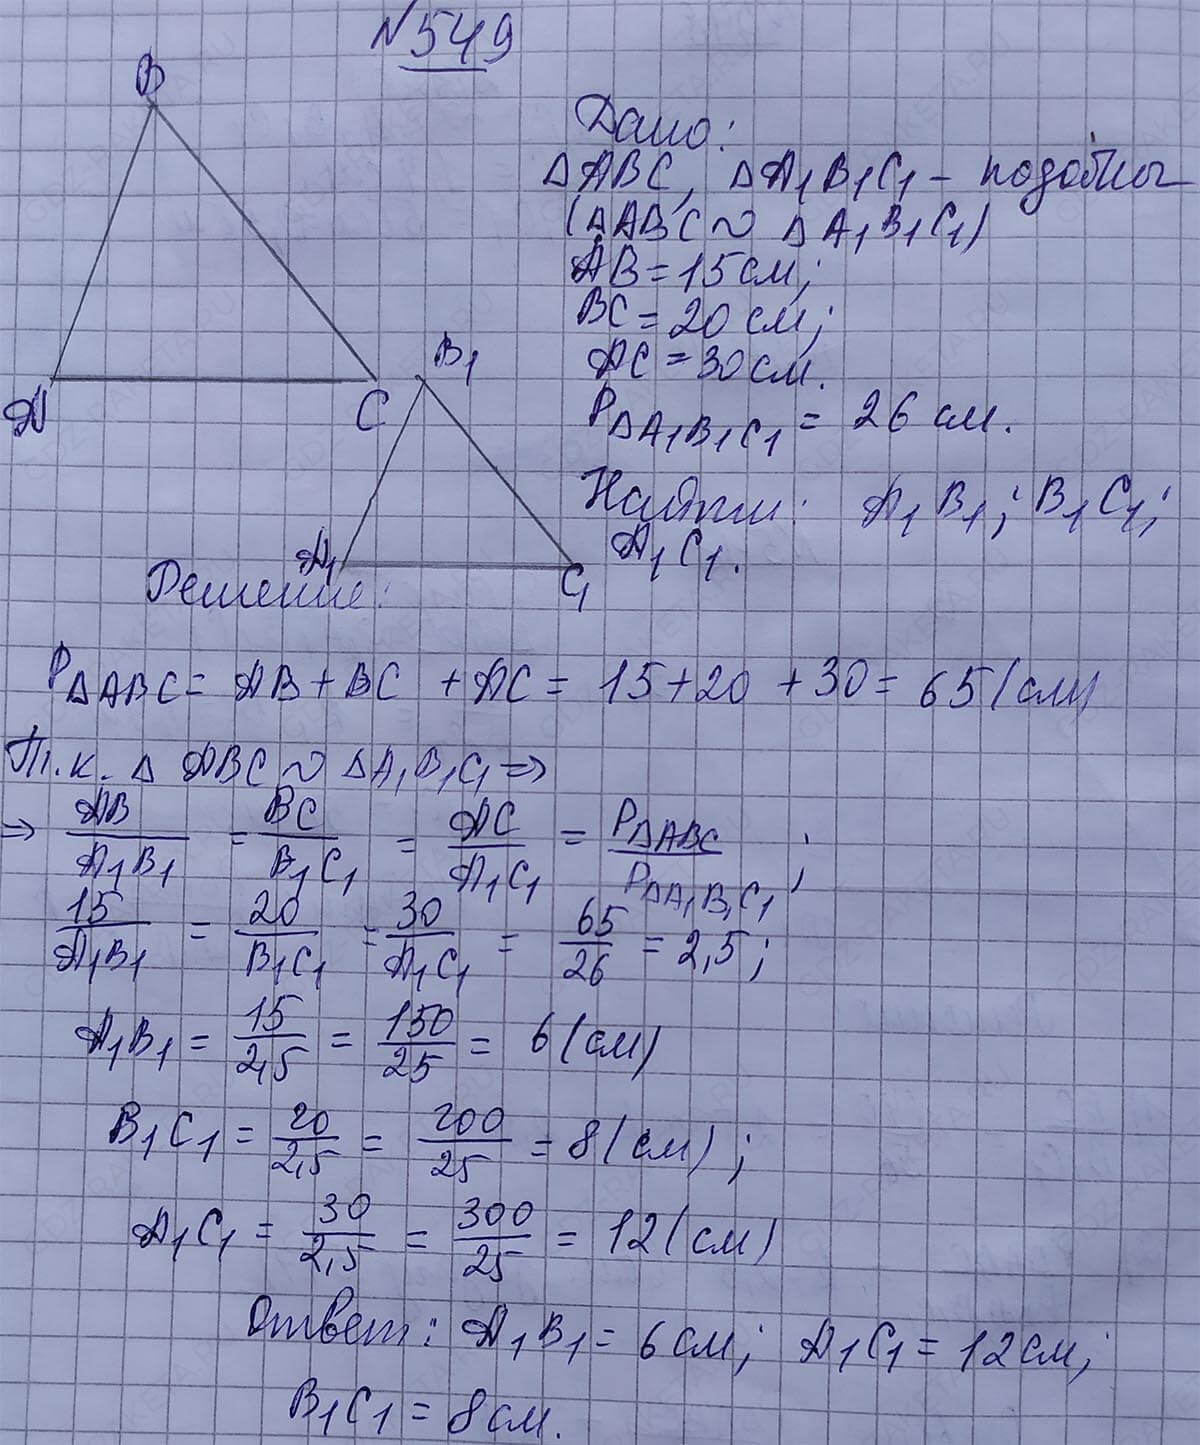 №549
B
A
C
B₁
A₁
C₁
Дано:
△ABC, △A₁B₁C₁ - подобны
(△ABC ∾ △A₁B₁C₁)
AB = 15 см;
BC = 20 см;
AC = 30 см.
P△A₁B₁C₁ = 26 см.
Найти: A₁B₁; B₁C₁;
A₁C₁.
Решение:
P△ABC = AB + BC + AC = 15 + 20 + 30 = 65 (см)
Т.к. △ ABC ∾ △A₁B₁C₁ ⇒
⇒ AB/A₁B₁ = BC/B₁C₁ = AC/A₁C₁ = P△ABC/P△A₁B₁C₁;
15/A₁B₁ = 20/B₁C₁ = 30/A₁C₁ = 65/26 = 2,5;
A₁B₁ = 15/2,5 = 150/25 = 6 (см)
B₁C₁ = 20/2,5 = 200/25 = 8 (см);
A₁C₁ = 30/2,5 = 300/25 = 12 (см)
Ответ: A₁B₁ = 6 см; A₁C₁ = 12 см;
B₁C₁ = 8 см.